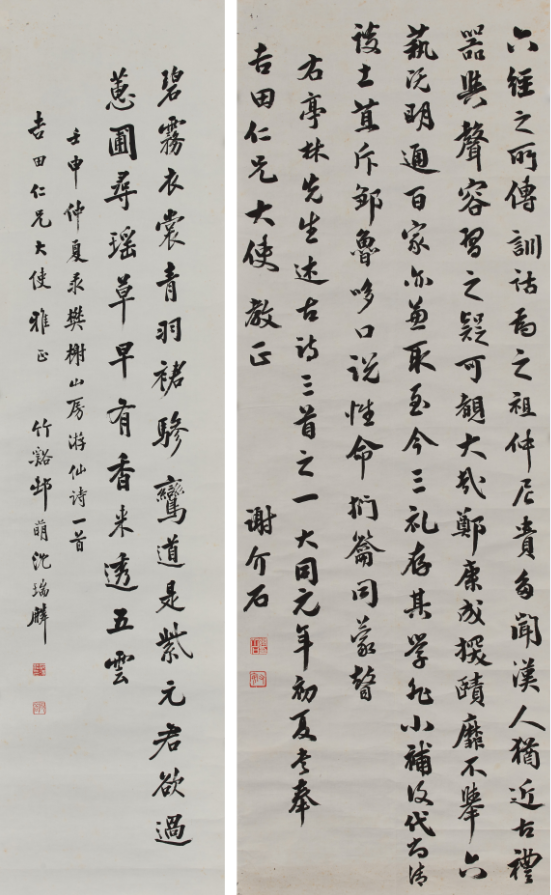 六經之所傳訓詁為之祖仲尼貴多聞漢人猶近古禮
器與聲容習之疑可覩大哉鄭康成探賾靡不舉六
藝既明通百家亦兼取至今三礼存其學非小補後代尚清
談土苴斥鄒魯哆口說性命捫籥同蒙瞽
右亭林先生述古詩三首之一大同元年初夏書奉
吉田仁兄大使教正
謝介石
碧霧衣裳青羽裙驂鸞道是紫元君欲過
蕙圃尋瑤草早有香來透五雲
壬申仲夏录樊榭山房游仙詩一首
吉田仁兄大使雅正
竹谿邨萌沈瑞麟